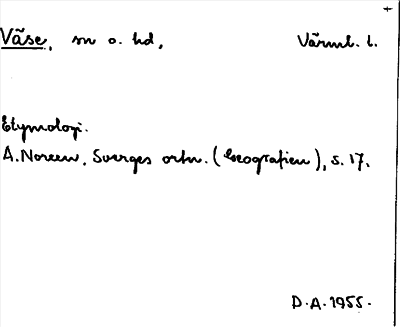 Väse, sn o. hd, Värml. l.
Etymologi.
A. Noreen, Sveriges ortn. (Geografien), s. 17.
D.A. 1955.